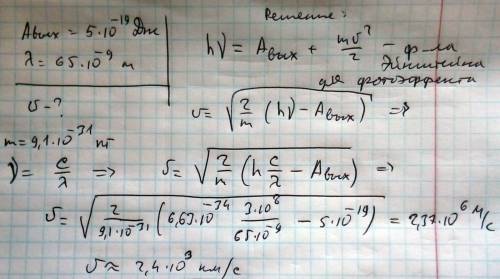 Решение:
Aвых = 5·10⁻¹⁹ Дж
λ = 65·10⁻⁹ м
υ - ?
hν = Aвых + mυ²/2 - ф-ла Эйнштейна
для фотоэффекта
υ = √(2/m (hν - Aвых)) =>
m = 9,1·10⁻³¹ кг
ν = c/λ => υ = √(2/m (h c/λ - Aвых)) =>
υ = √(2/9,1·10⁻³¹ (6,63·10⁻³⁴ 3·10⁸/65·10⁻⁹ - 5·10⁻¹⁹)) = 2,37·10⁶ м/с
υ ≈ 2,4·10³ км/с